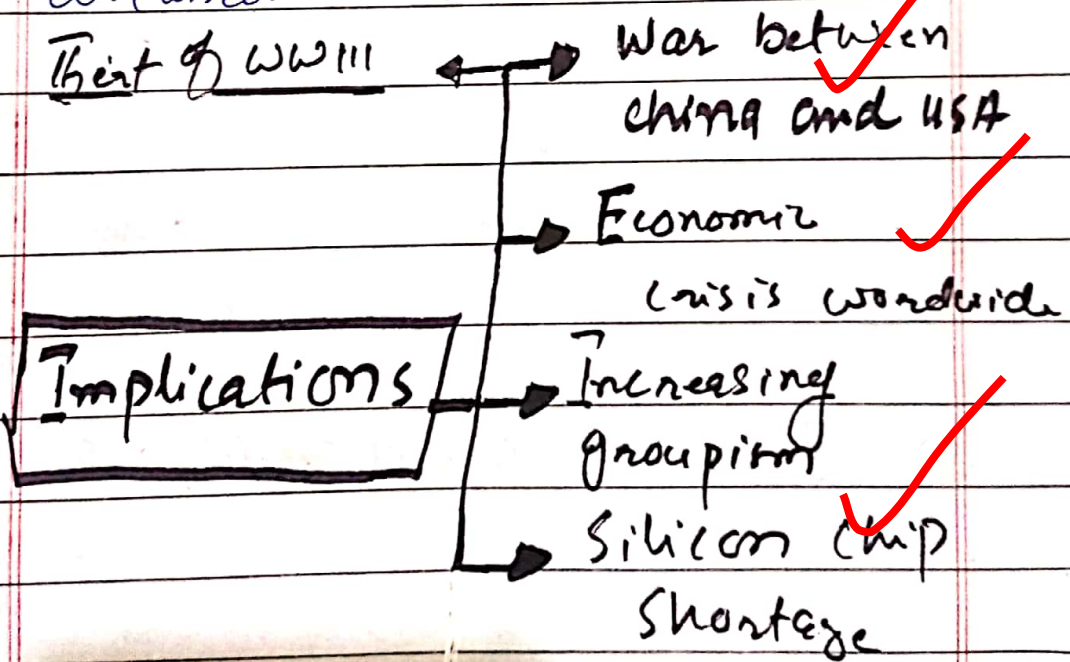 Thert of WWIII
War between
china and USA
Economic
crisis wordwide
Implications
Increasing
groupism
Silicon chip
Shortage